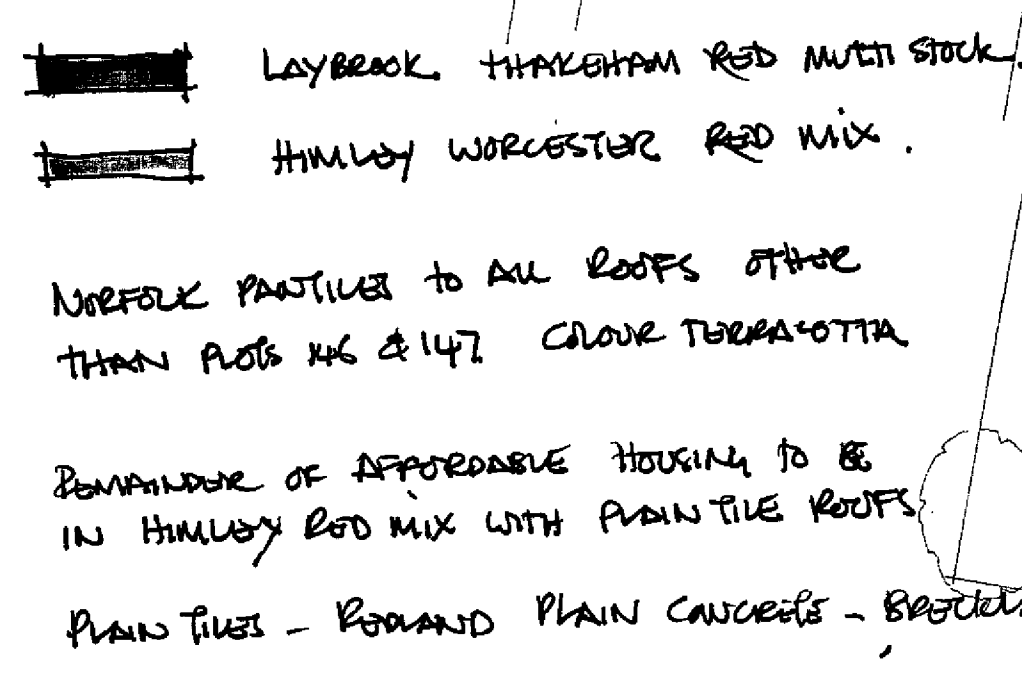 LAYBROOK THAKEHAM RED MULTI STOCK.
HIMLEY WORCESTER RED MIX.
NORFOLK PANTILES TO ALL ROOFS OTHER
THAN PLOTS 146 & 147. COLOUR TERRACOTTA
REMAINDER OF AFFORDABLE HOUSING TO BE
IN HIMLEY RED MIX WITH PLAIN TILE ROOFS
PLAIN TILES - REDLAND PLAIN CONCRETE -